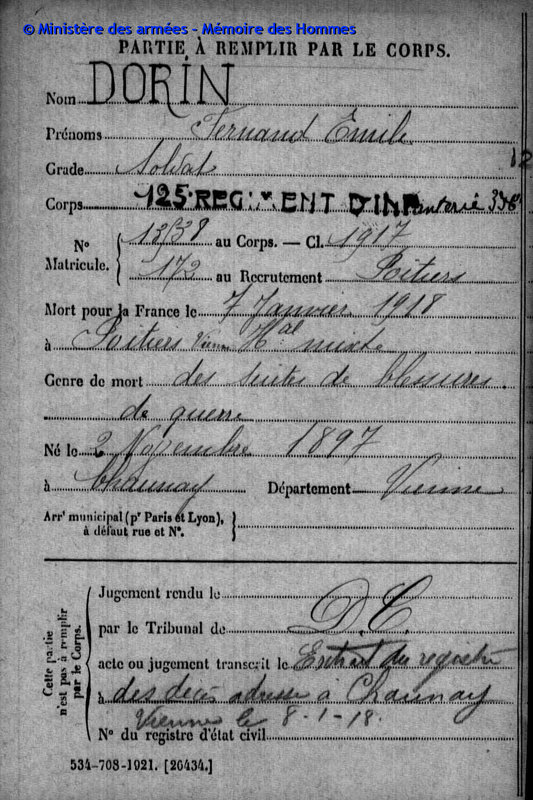 © Ministère des armées - Mémoire des Hommes
PARTIE À REMPLIR PAR LE CORPS.
Nom DORIN
Prénoms Fernand Emile
Grade Soldat
12
Corps 125 REGIMENT D'INFanterie
N° Matricule. { 13738 au Corps. — Cl. 1917
172 au Recrutement Poitiers
Mort pour la France le 7 Janvier 1918
à Poitiers Vienne Hal mixte
Genre de mort des suites de blessures
de guerre
Né le 2 Novembre 1897
à Chaunay Département Vienne
Arrt municipal (pr Paris et Lyon), à défaut rue et N°. }
Cette partie n'est pas à remplir par le Corps.
Jugement rendu le
par le Tribunal de D.C.
acte ou jugement transcrit le Extrait du registre
à des décès adressé a Chaunay
Vienne le 8-1-18.
N° du registre d'état civil
534-708-1921. [26434.]